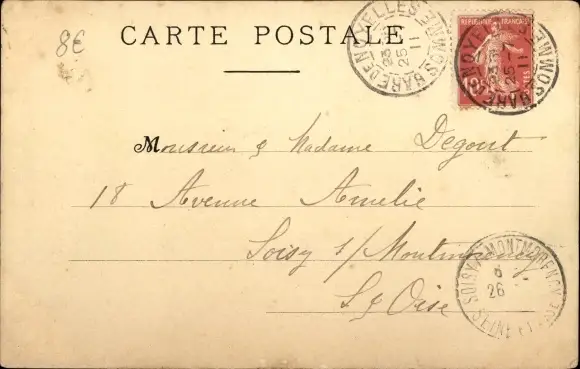 8€
CARTE POSTALE
GARE DE NOYELLES SOMME
25
11
REPUBLIQUE FRANÇAISE
10
GARE DE NOYELLES SOMME
25
11
Monsieur & Madame Degout
18 Avenue Amelie
Soisy s/ Montmorency
S & Oise
SOISY MONTMORENCY
6
26
SEINE ET OISE